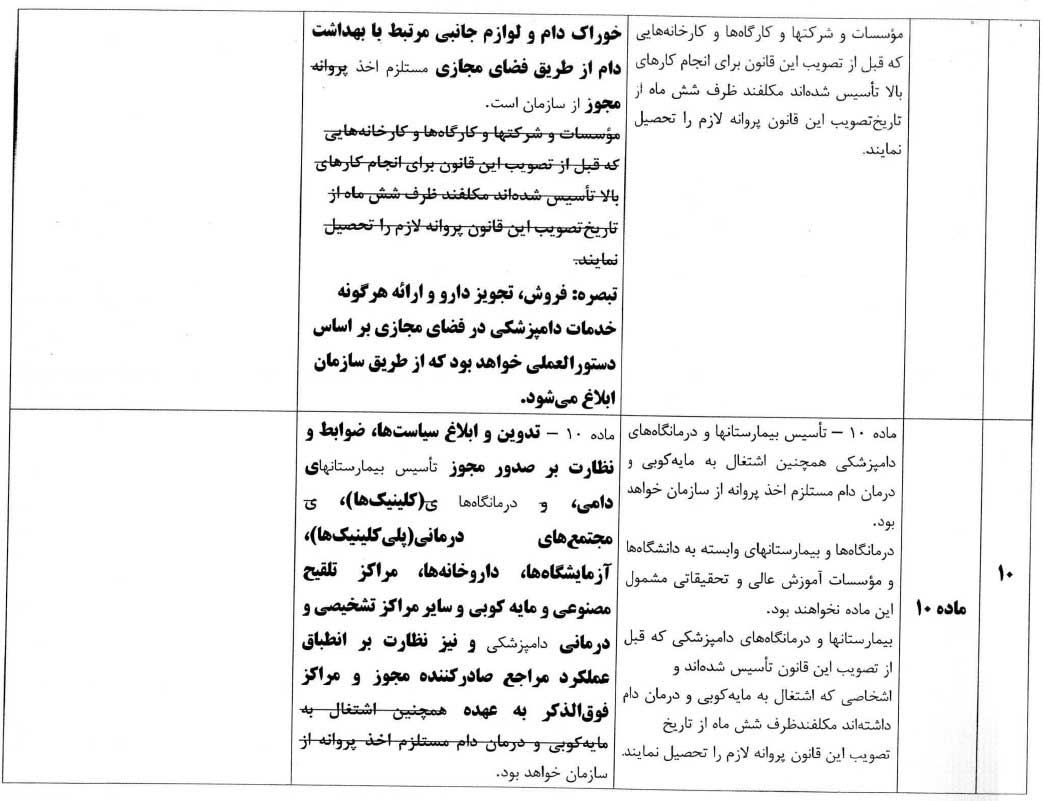 مؤسسات و شرکتها و کارگاه‌ها و کارخانه‌هایی
که قبل از تصویب این قانون برای انجام کارهای
بالا تأسیس شده‌اند مکلفند ظرف شش ماه از
تاریخ‌تصویب این قانون پروانه لازم را تحصیل
نمایند.
خوراک دام و لوازم جانبی مرتبط با بهداشت
دام از طریق فضای مجازی مستلزم اخذ پروانه
مجوز از سازمان است.
مؤسسات و شرکتها و کارگاه‌ها و کارخانه‌هایی
که قبل از تصویب این قانون برای انجام کارهای
بالا تأسیس شده‌اند مکلفند ظرف شش ماه از
تاریخ‌تصویب این قانون پروانه لازم را تحصیل
نمایند.
تبصره: فروش، تجویز دارو و ارائه هرگونه
خدمات دامپزشکی در فضای مجازی بر اساس
دستورالعملی خواهد بود که از طریق سازمان
ابلاغ می‌شود.
۱۰
ماده ۱۰
ماده ۱۰ – تأسیس بیمارستانها و درمانگاه‌های
دامپزشکی همچنین اشتغال به مایه‌کوبی و
درمان دام مستلزم اخذ پروانه از سازمان خواهد
بود.
درمانگاه‌ها و بیمارستانهای وابسته به دانشگاه‌ها
و مؤسسات آموزش عالی و تحقیقاتی مشمول
این ماده نخواهند بود.
بیمارستانها و درمانگاه‌های دامپزشکی که قبل
از تصویب این قانون تأسیس شده‌اند و
اشخاصی که اشتغال به مایه‌کوبی و درمان دام
داشته‌اند مکلفندظرف شش ماه از تاریخ
تصویب این قانون پروانه لازم را تحصیل نمایند.
ماده ۱۰ – تدوین و ابلاغ سیاست‌ها، ضوابط و
نظارت بر صدور مجوز تأسیس بیمارستانهای
دامی، و درمانگاه‌ها ی(کلینیک‌ها)، ی
مجتمع‌های درمانی(پلی‌کلینیک‌ها)،
آزمایشگاه‌ها، داروخانه‌ها، مراکز تلقیح
مصنوعی و مایه کوبی و سایر مراکز تشخیصی و
درمانی دامپزشکی و نیز نظارت بر انطباق
عملکرد مراجع صادرکننده مجوز و مراکز
فوق‌الذکر به عهده همچنین اشتغال به
مایه‌کوبی و درمان دام مستلزم اخذ پروانه از
سازمان خواهد بود.